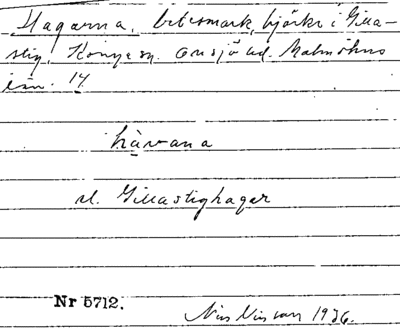 Hagarna, betesmark, björkr i Gilla-
stig, Konga sn. Onsjö hd. Malmöhus
län. 14
hāvana
el. Gillastighagar
Nr 5712.
Nils Nilsson 1926.